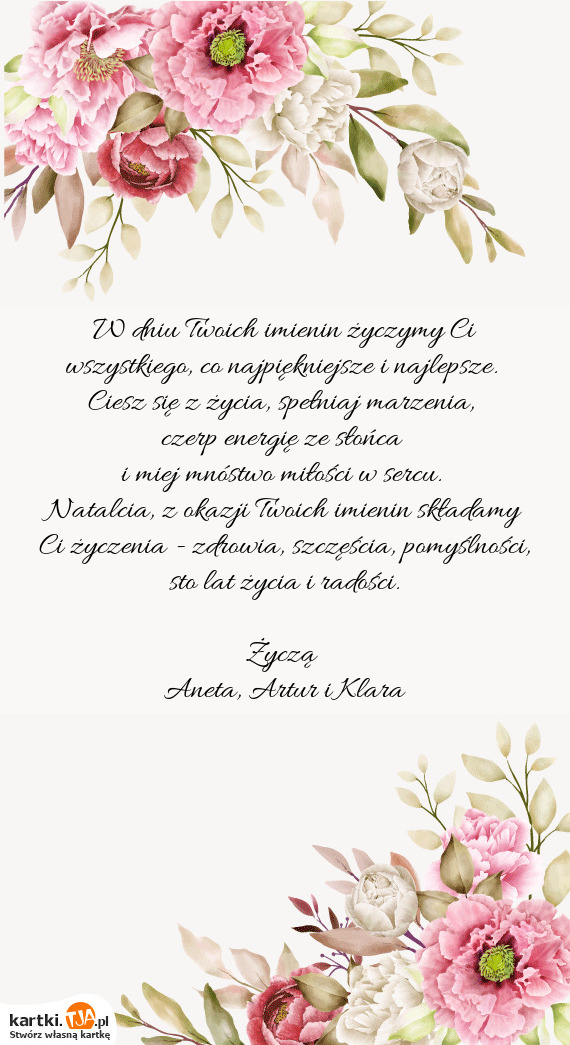 W dniu Twoich imienin życzymy Ci
wszystkiego, co najpiękniejsze i najlepsze.
Ciesz się z życia, spełniaj marzenia,
czerp energię ze słońca
i miej mnóstwo miłości w sercu.
Natalcia, z okazji Twoich imienin składamy
Ci życzenia - zdrowia, szczęścia, pomyślności,
sto lat życia i radości.
Życzą
Aneta, Artur i Klara
kartki.TJA.pl
Stwórz własną kartkę